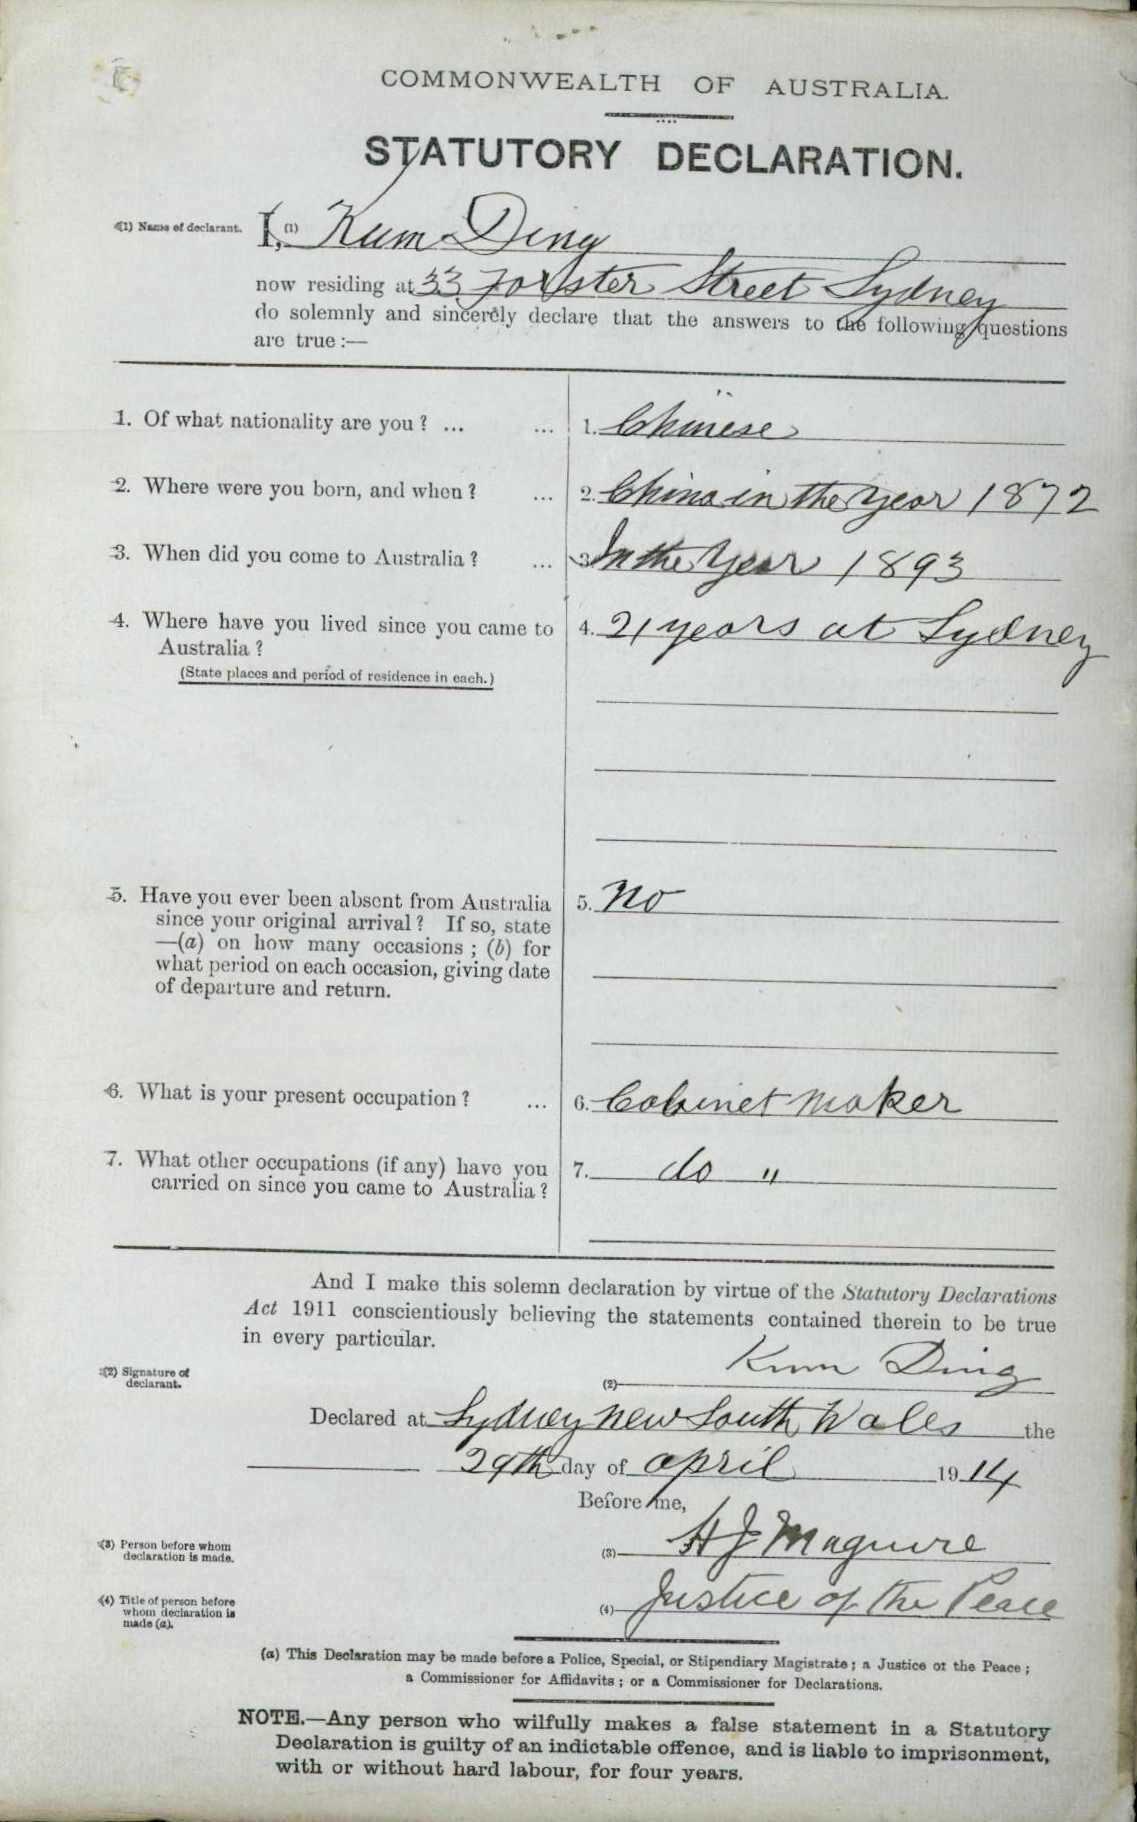 COMMONWEALTH OF AUSTRALIA.
STATUTORY DECLARATION.
(1) Name of declarant. I, (1) Kum Ding
now residing at 33 Forster Street Sydney
do solemnly and sincerely declare that the answers to the following questions
are true :—
1. Of what nationality are you ? ... ... 1. Chinese
2. Where were you born, and when ? ... 2. China in the Year 1872
3. When did you come to Australia ? ... 3. In the Year 1893
4. Where have you lived since you came to 4. 21 years at Sydney
Australia ?
(State places and period of residence in each.)
5. Have you ever been absent from Australia 5. No
since your original arrival ? If so, state
—(a) on how many occasions ; (b) for
what period on each occasion, giving date
of departure and return.
6. What is your present occupation ? ... 6. Cabinet maker
7. What other occupations (if any) have you 7. do "
carried on since you came to Australia ?
And I make this solemn declaration by virtue of the Statutory Declarations
Act 1911 conscientiously believing the statements contained therein to be true
in every particular.
(2) Signature of declarant. (2) Kum Ding
Declared at Sydney New South Wales the
29th day of april 1914
Before me,
(3) Person before whom declaration is made. (3) H J Maguire
(4) Title of person before whom declaration is made (a). (4) Justice of the Peace
(a) This Declaration may be made before a Police, Special, or Stipendiary Magistrate ; a Justice of the Peace ;
a Commissioner for Affidavits ; or a Commissioner for Declarations.
NOTE.—Any person who wilfully makes a false statement in a Statutory
Declaration is guilty of an indictable offence, and is liable to imprisonment,
with or without hard labour, for four years.